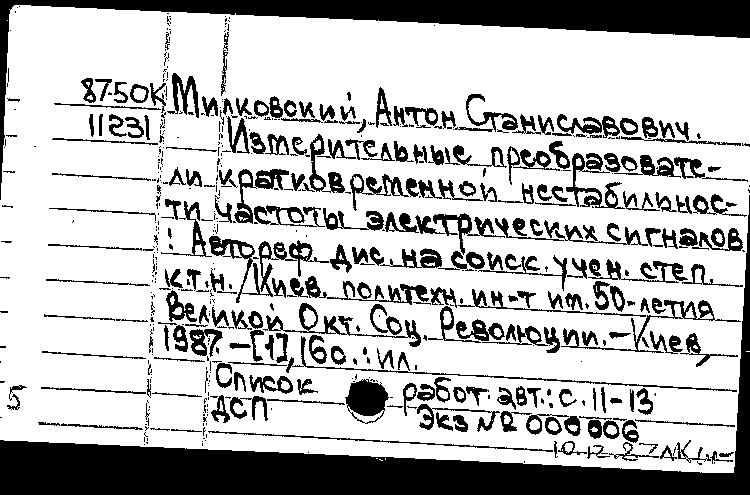 87-50К Милковский, Антон Станиславович.
11231 Измерительные преобразовате-
ли кратковременной нестабильнос-
ти частоты электрических сигналов
: Автореф. дис. на соиск. учен. степ.
к.т.н. /Киев. политехн. ин-т им. 50-летия
Великой Окт. Соц. Революции. – Киев,
1987. – [1], 16с. : ил.
Список работ авт.: с. 11-13
5 ДСП Экз № 000006
10.12.87